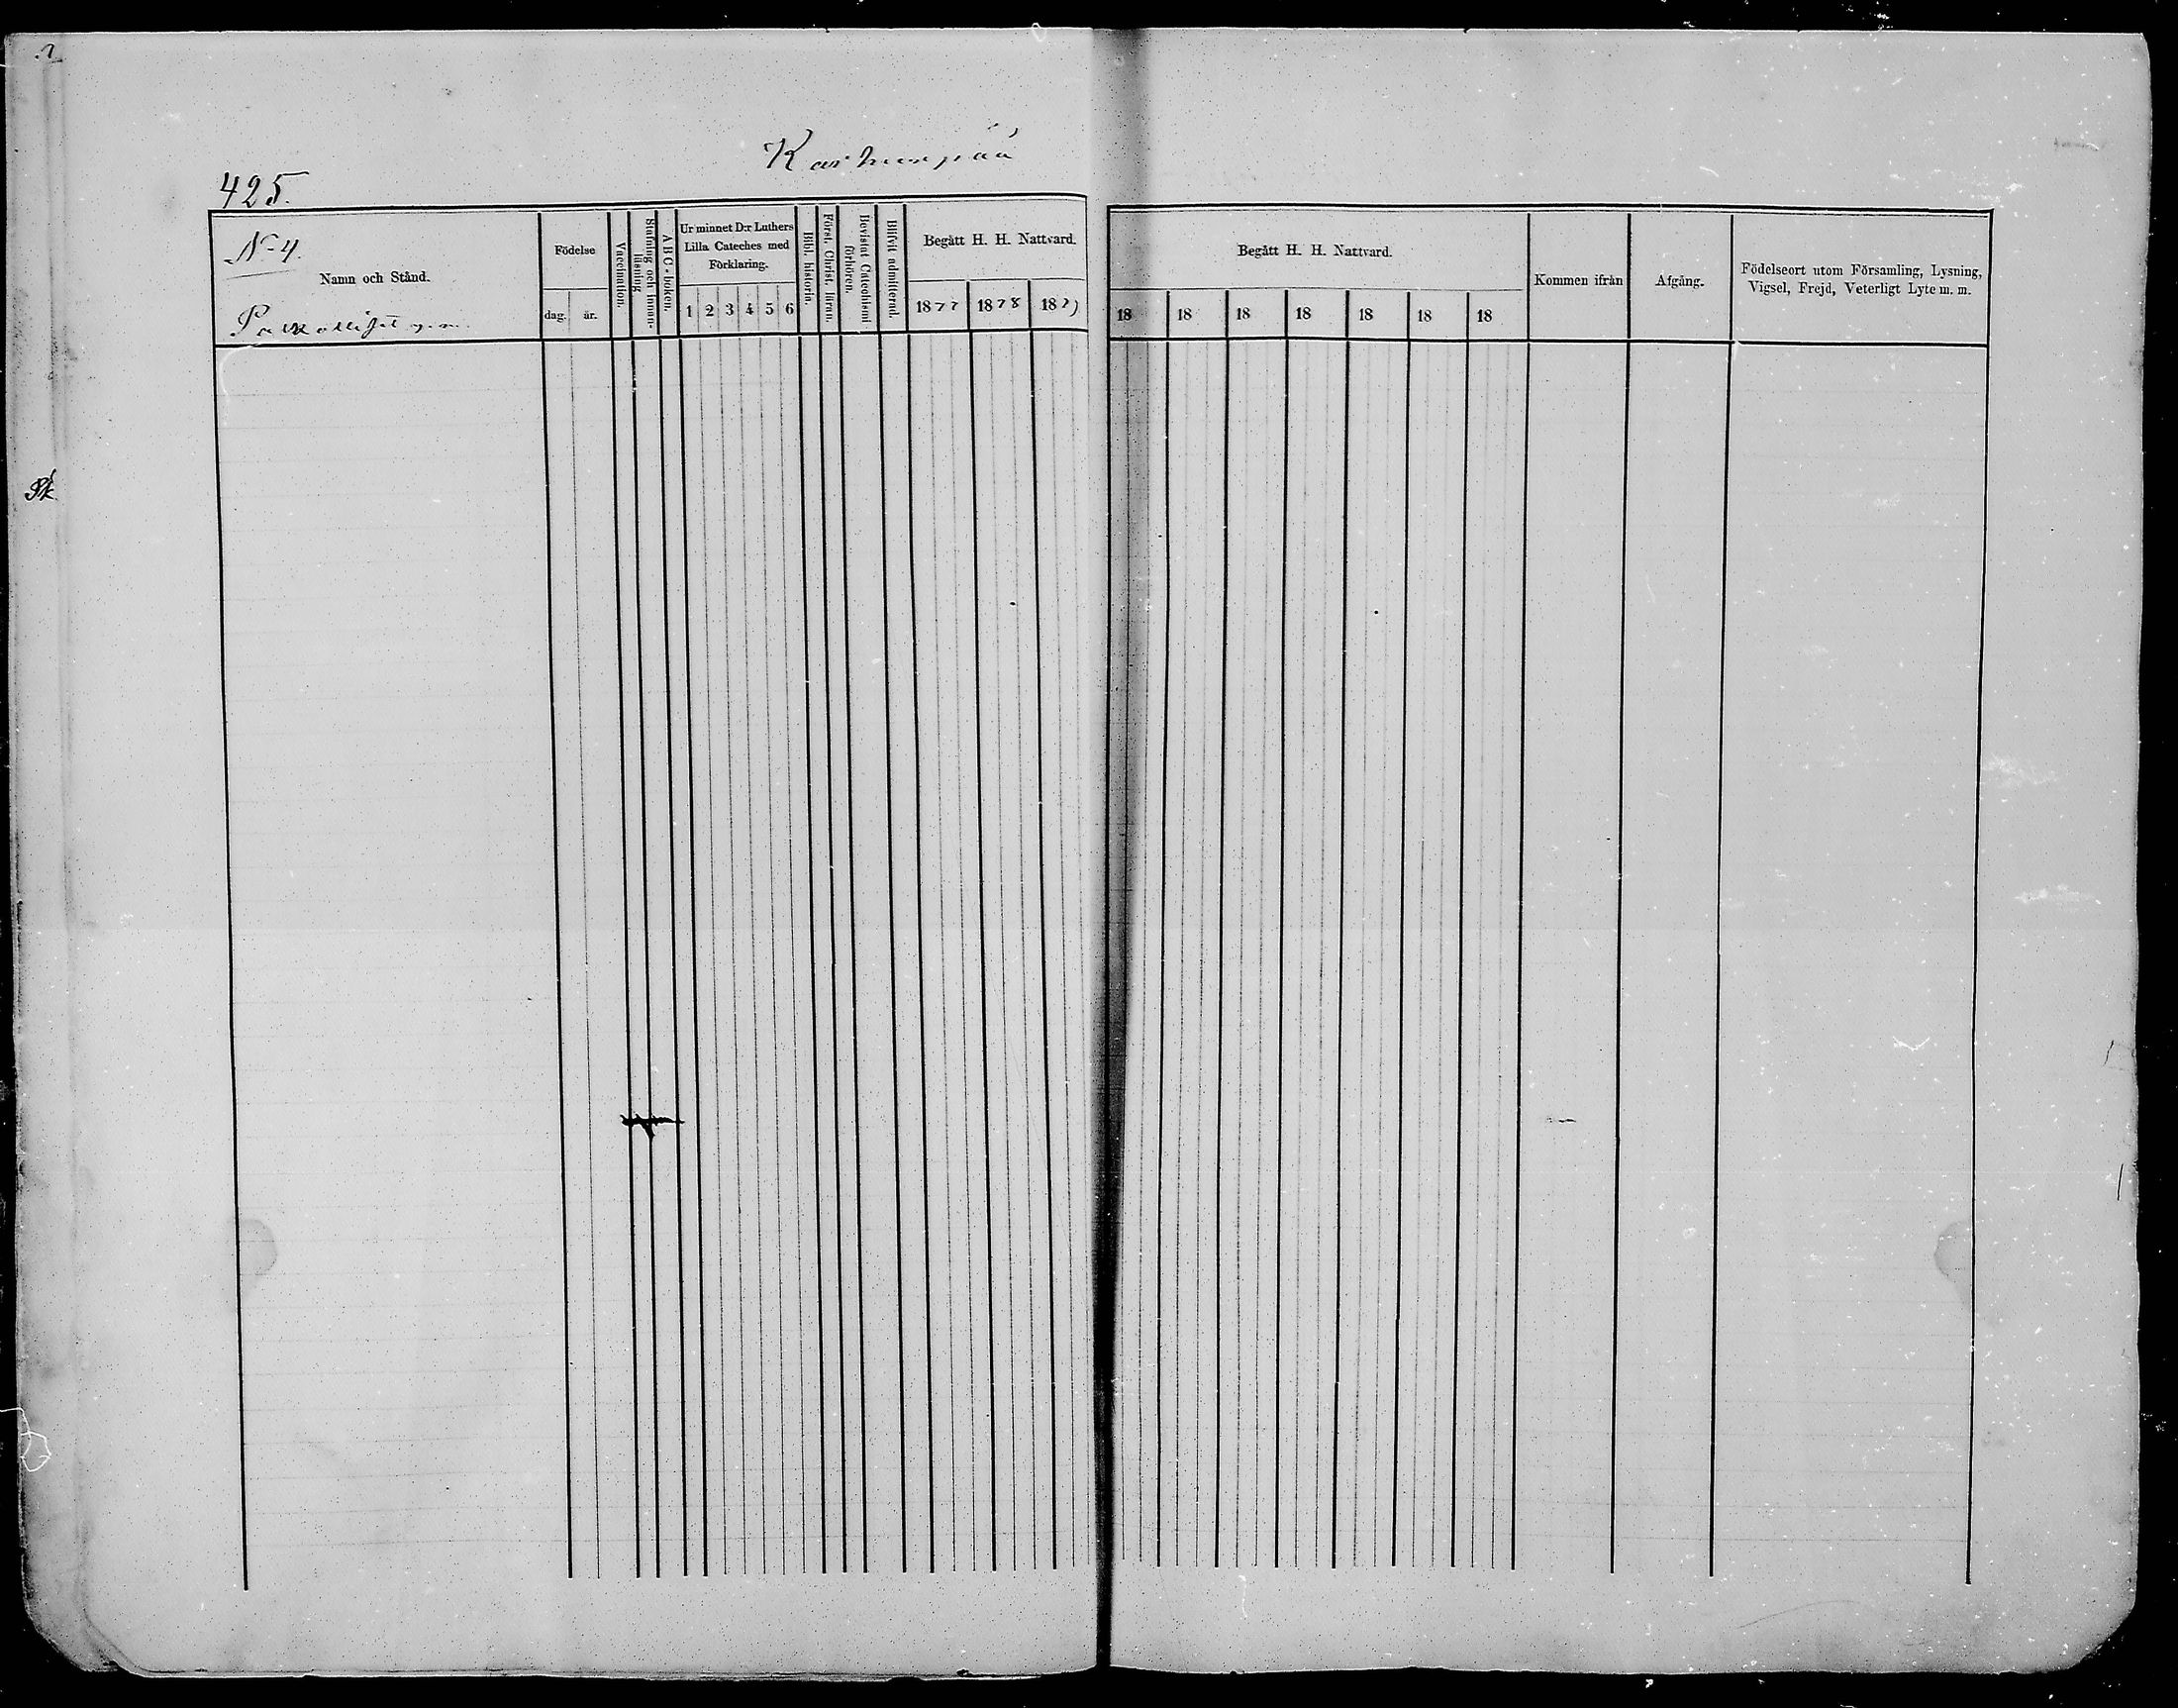 425.
N° 4.
Namn och Stånd.
Födelse
dag. år.
Vaccination.
Stafning och innan-
läsning
A B C-boken.
Ur minnet D:r Luthers
Lilla Cateches med
Förklaring.
1 2 3 4 5 6
Bibl. historia.
Först. Christ. läran.
Bevistat Catechismi
förhören.
Blifvit admitterad.
Begått H. H. Nattvard.
1877 1878 18
Begått H. H. Nattvard.
18 18 18 18 18 18 18
Kommen ifrån
Afgång.
Födelseort utom Församling, Lysning,
Vigsel, Frejd, Veterligt Lyte m. m.